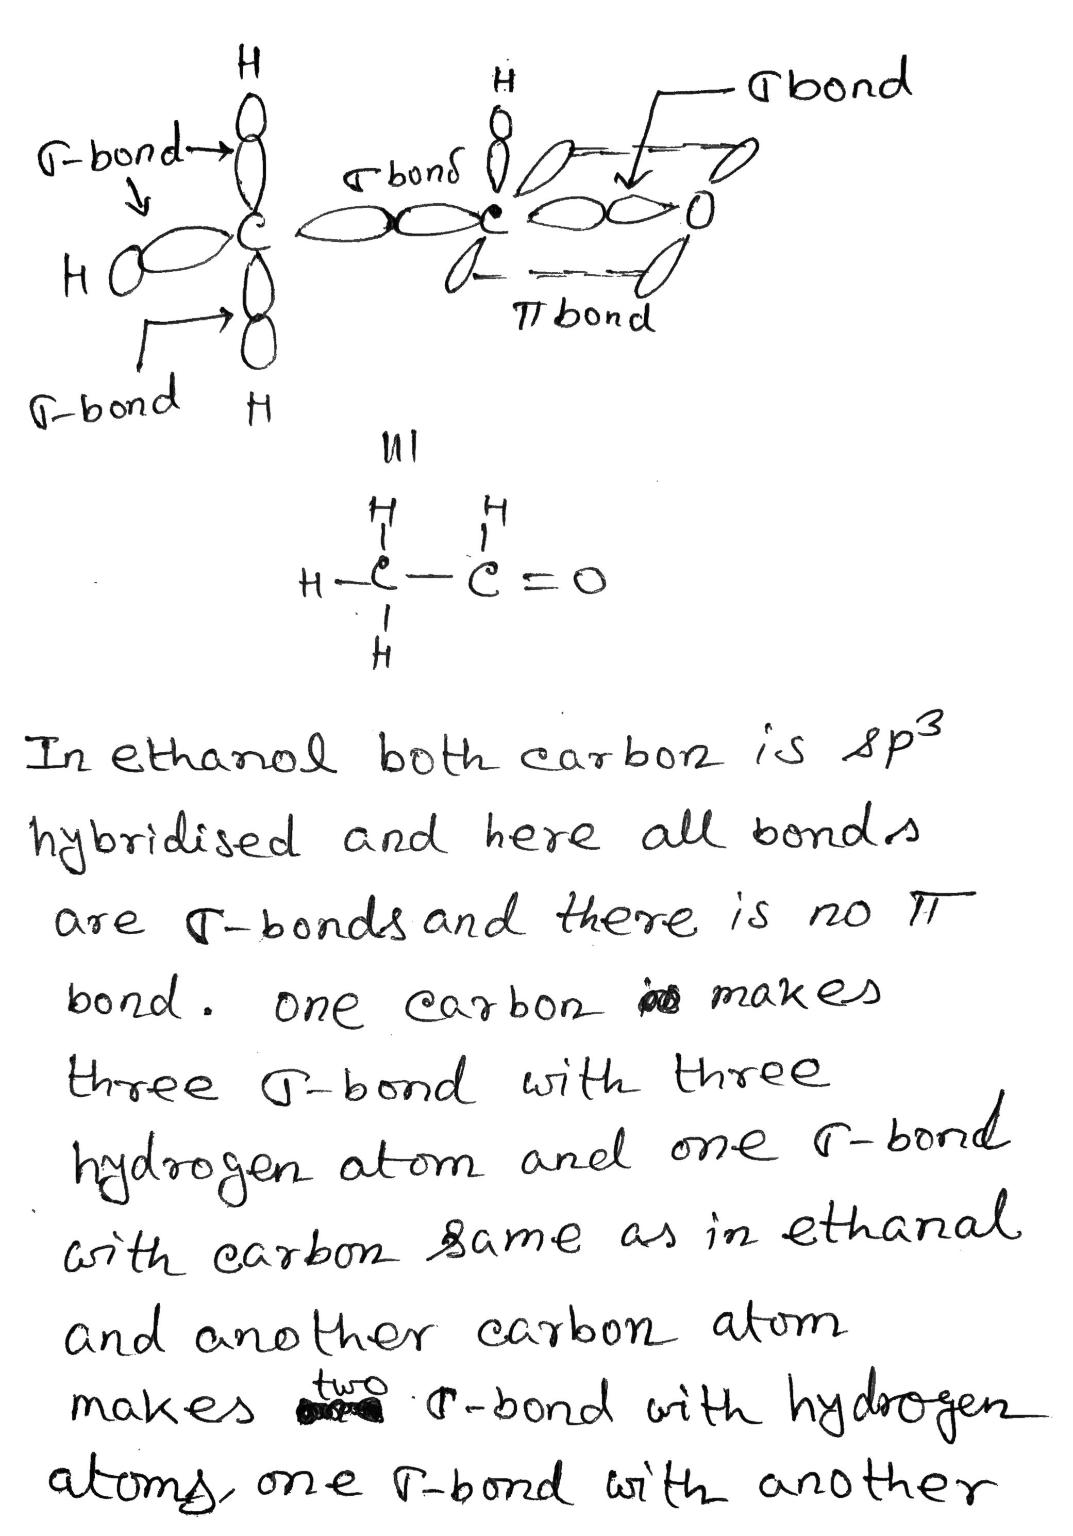 H
H
σ bond
σ-bond
σ bond
C
C
O
H
π bond
σ-bond
H
III
H H
H-C-C=O
H
In ethanol both carbon is sp³
hybridised and here all bonds
are σ-bonds and there is no π
bond. one carbon makes
three σ-bond with three
hydrogen atom and one σ-bond
with carbon same as in ethanal
and another carbon atom
makes two σ-bond with hydrogen
atoms, one σ-bond with another